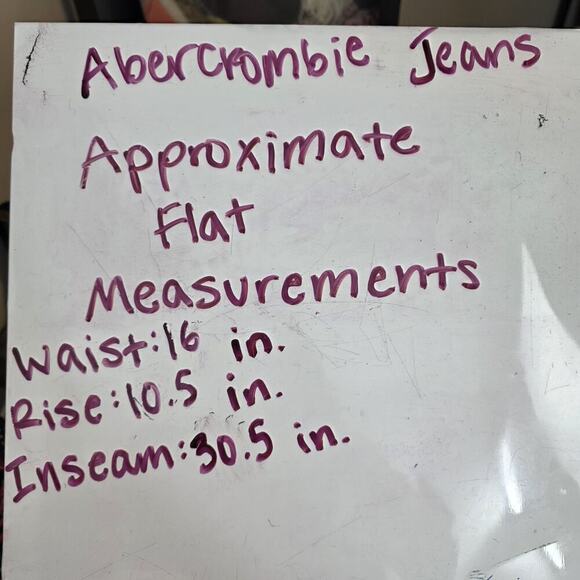 Abercrombie Jeans
Approximate
Flat
Measurements
Waist: 16 in.
Rise: 10.5 in.
Inseam: 30.5 in.